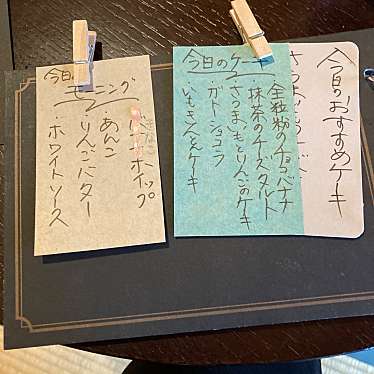 今日のおすすめケーキ
今日のケーキ
全粒粉のチョコバナナ
・抹茶のチーズタルト
・さつまいもとりんごのケーキ
・ガトーショコラ
・いもきんとんケーキ
今日の
モーニング
ホイップ
・あんこ
・りんごバター
・ホワイトソース